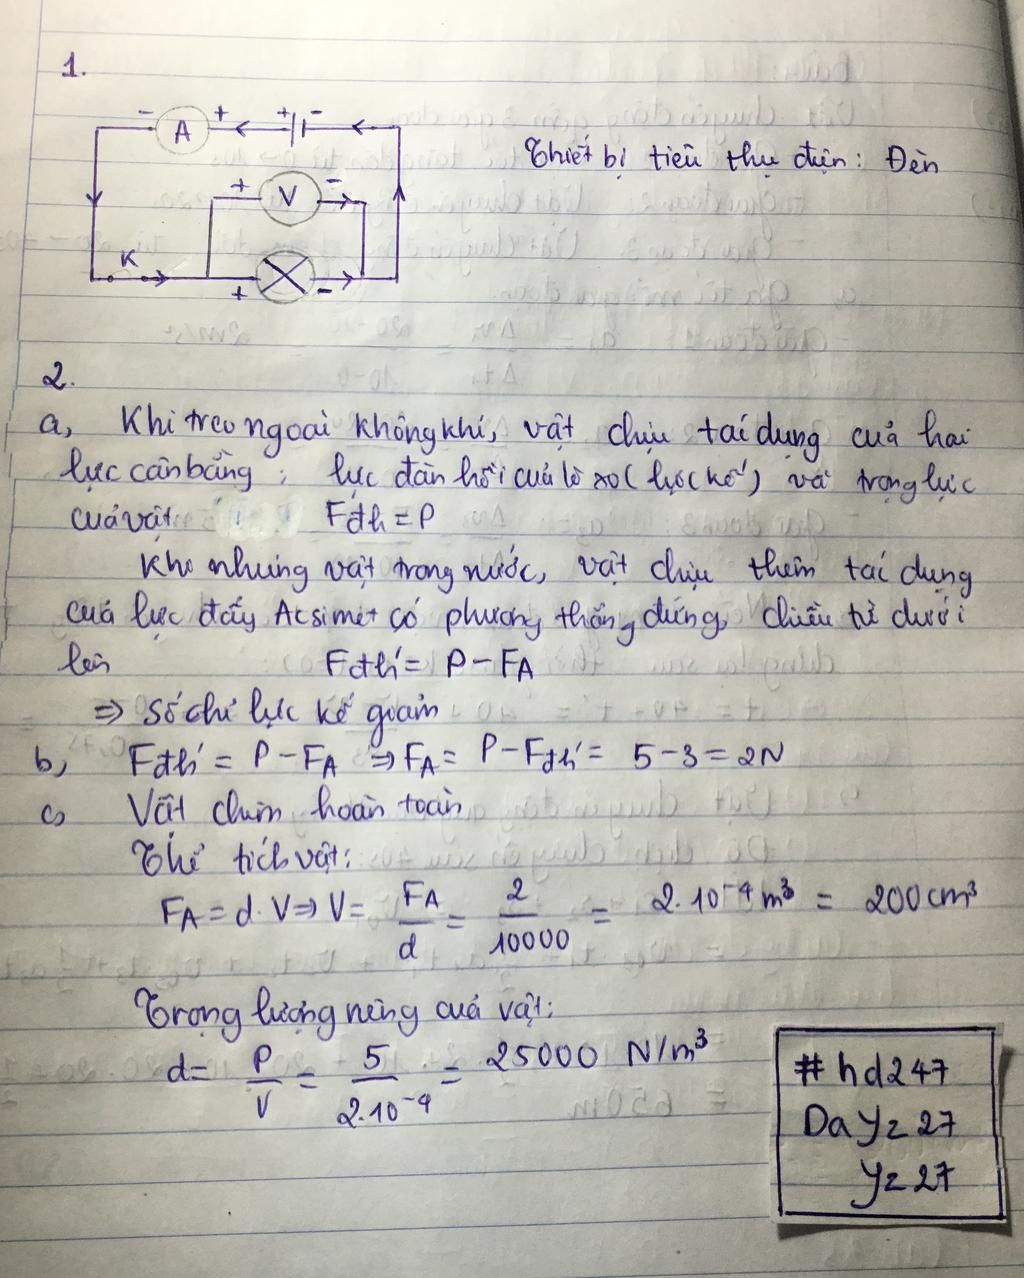 1.
- A + + -
Thiết bị tiêu thụ điện: Đèn
+ V -
K
+ -
2.
a, Khi treo ngoài không khí, vật chịu tác dụng của hai
lực cân bằng: lực đàn hồi của lò xo (lực kế) và trọng lực
của vật Fđh = P
Khi nhúng vật trong nước, vật chịu thêm tác dụng
của lực đẩy Acsimet có phương thẳng đứng, chiều từ dưới
lên Fđh' = P - FA
⇒ Số chỉ lực kế giảm
b, Fđh' = P - FA ⇒ FA = P - Fđh' = 5 - 3 = 2N
c, Vật chìm hoàn toàn
Thể tích vật:
FA = d.V ⇒ V = FA/d = 2/10000 = 2.10⁻⁴ m³ = 200cm³
Trọng lượng riêng của vật:
d = P/V = 5/2.10⁻⁴ = 25000 N/m³
#hd247
Dayz27
yz27